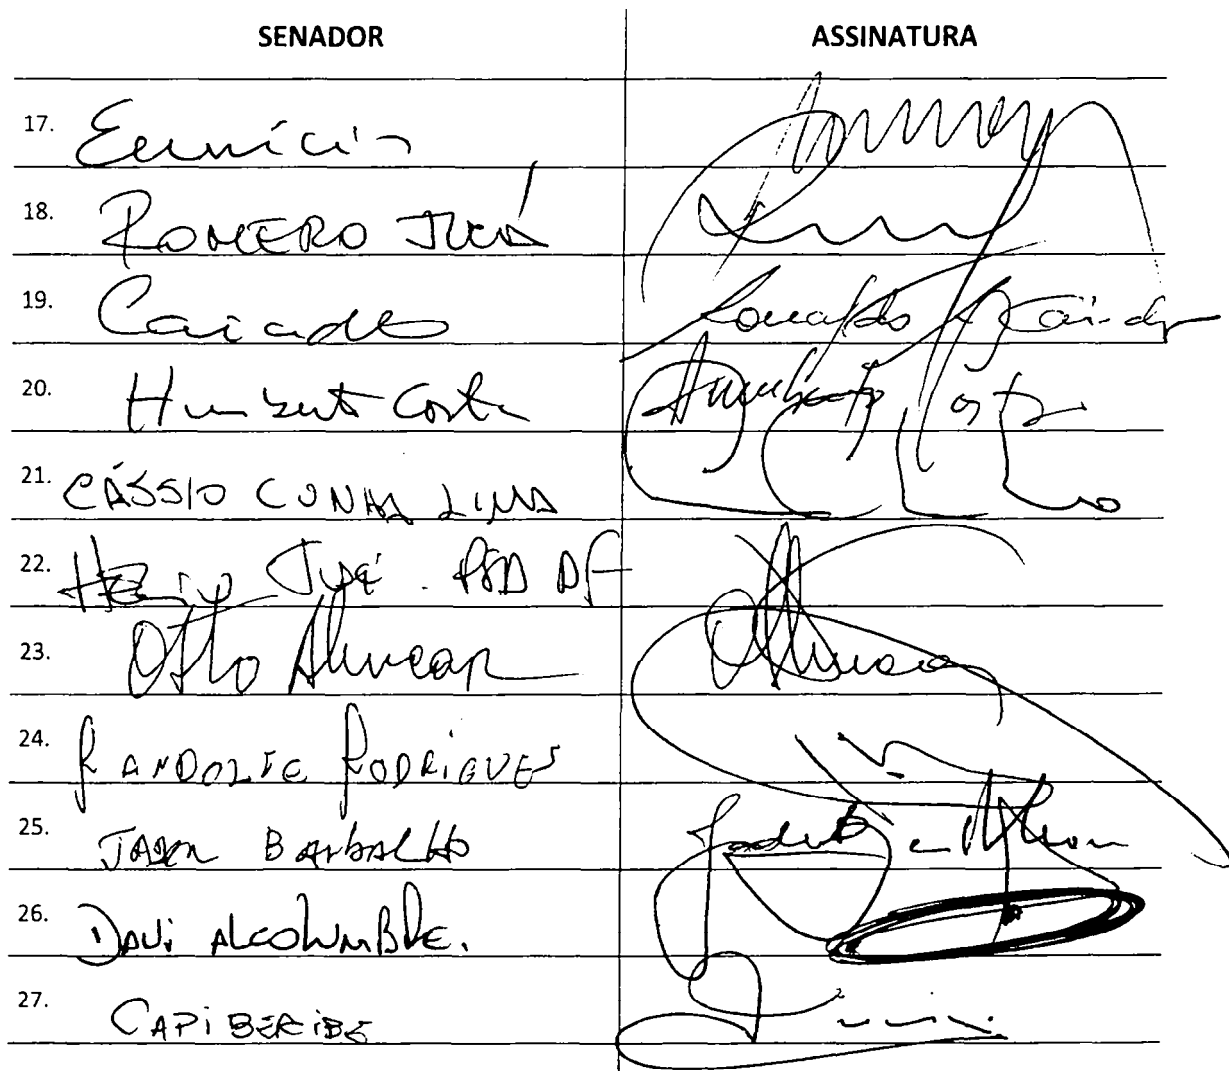 SENADOR ASSINATURA
17. Eunício
18. ROMERO JUCÁ
19. Caiado Ronaldo Caiado
20. Humberto Costa Humberto Costa
21. CÁSSIO CUNHA LIMA
22. Hélio José - PSD DF
23. Otto Alencar
24. RANDOLFE RODRIGUES
25. JADER BARBALHO
26. DAVI ALCOLUMBRE.
27. CAPIBERIBE